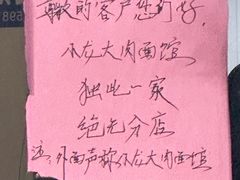 尊敬的客户您们好,
小龙大肉面馆
独此一家
绝无分店
还、外面声称小龙大肉面馆